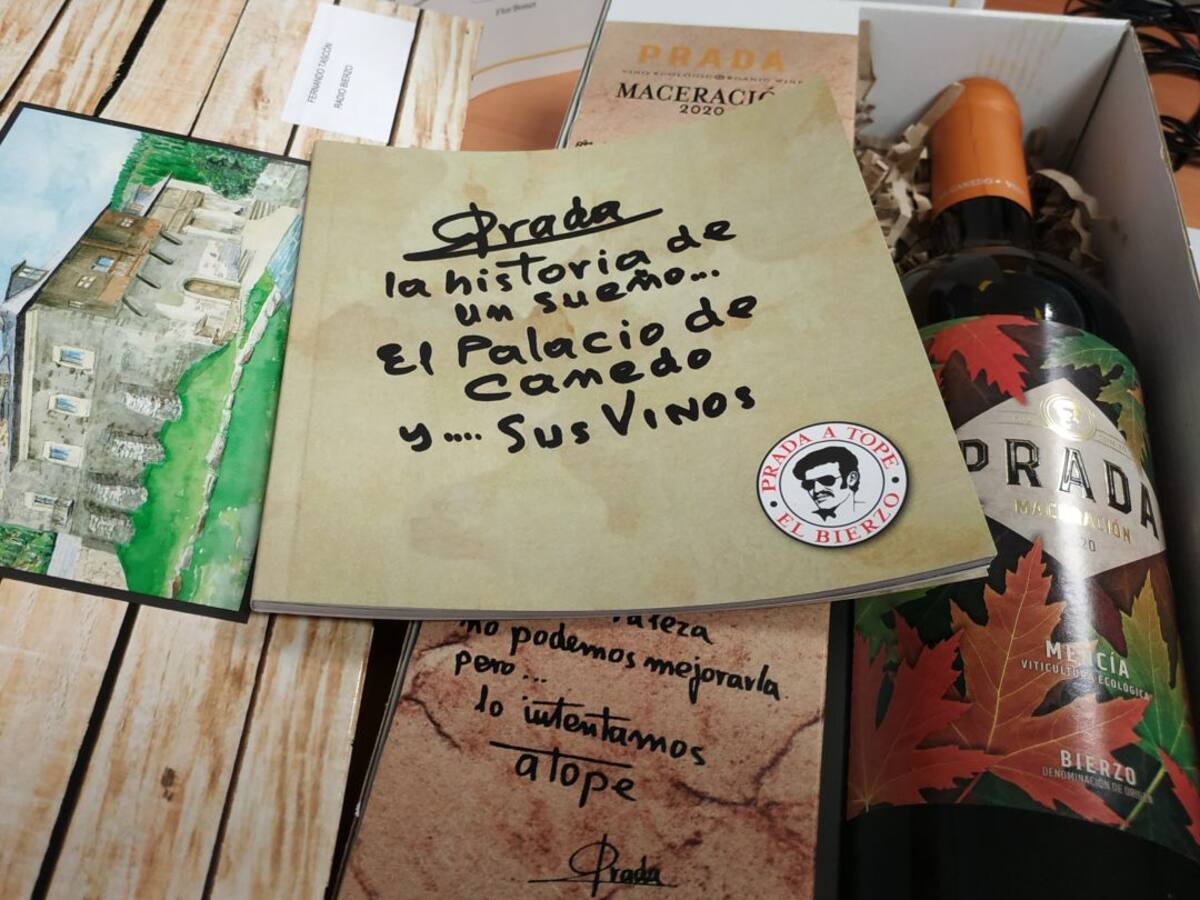 Flor Bonet
FERNANDO TASCÓN
RADIO BIERZO
PRADA
MACERACIÓ
2020
Prada
la historia de
un sueño...
El Palacio de
Canedo
y.... Sus VINOS
PRADA A TOPE
EL BIERZO
no podemos mejorarla
pero...
lo intentamos
a tope
Prada
CANEDO
PRADA
MACERACIÓN
20
MENCÍA
VITICULTURA ECOLÓGICA
BIERZO
DENOMINACIÓN DE ORIGEN